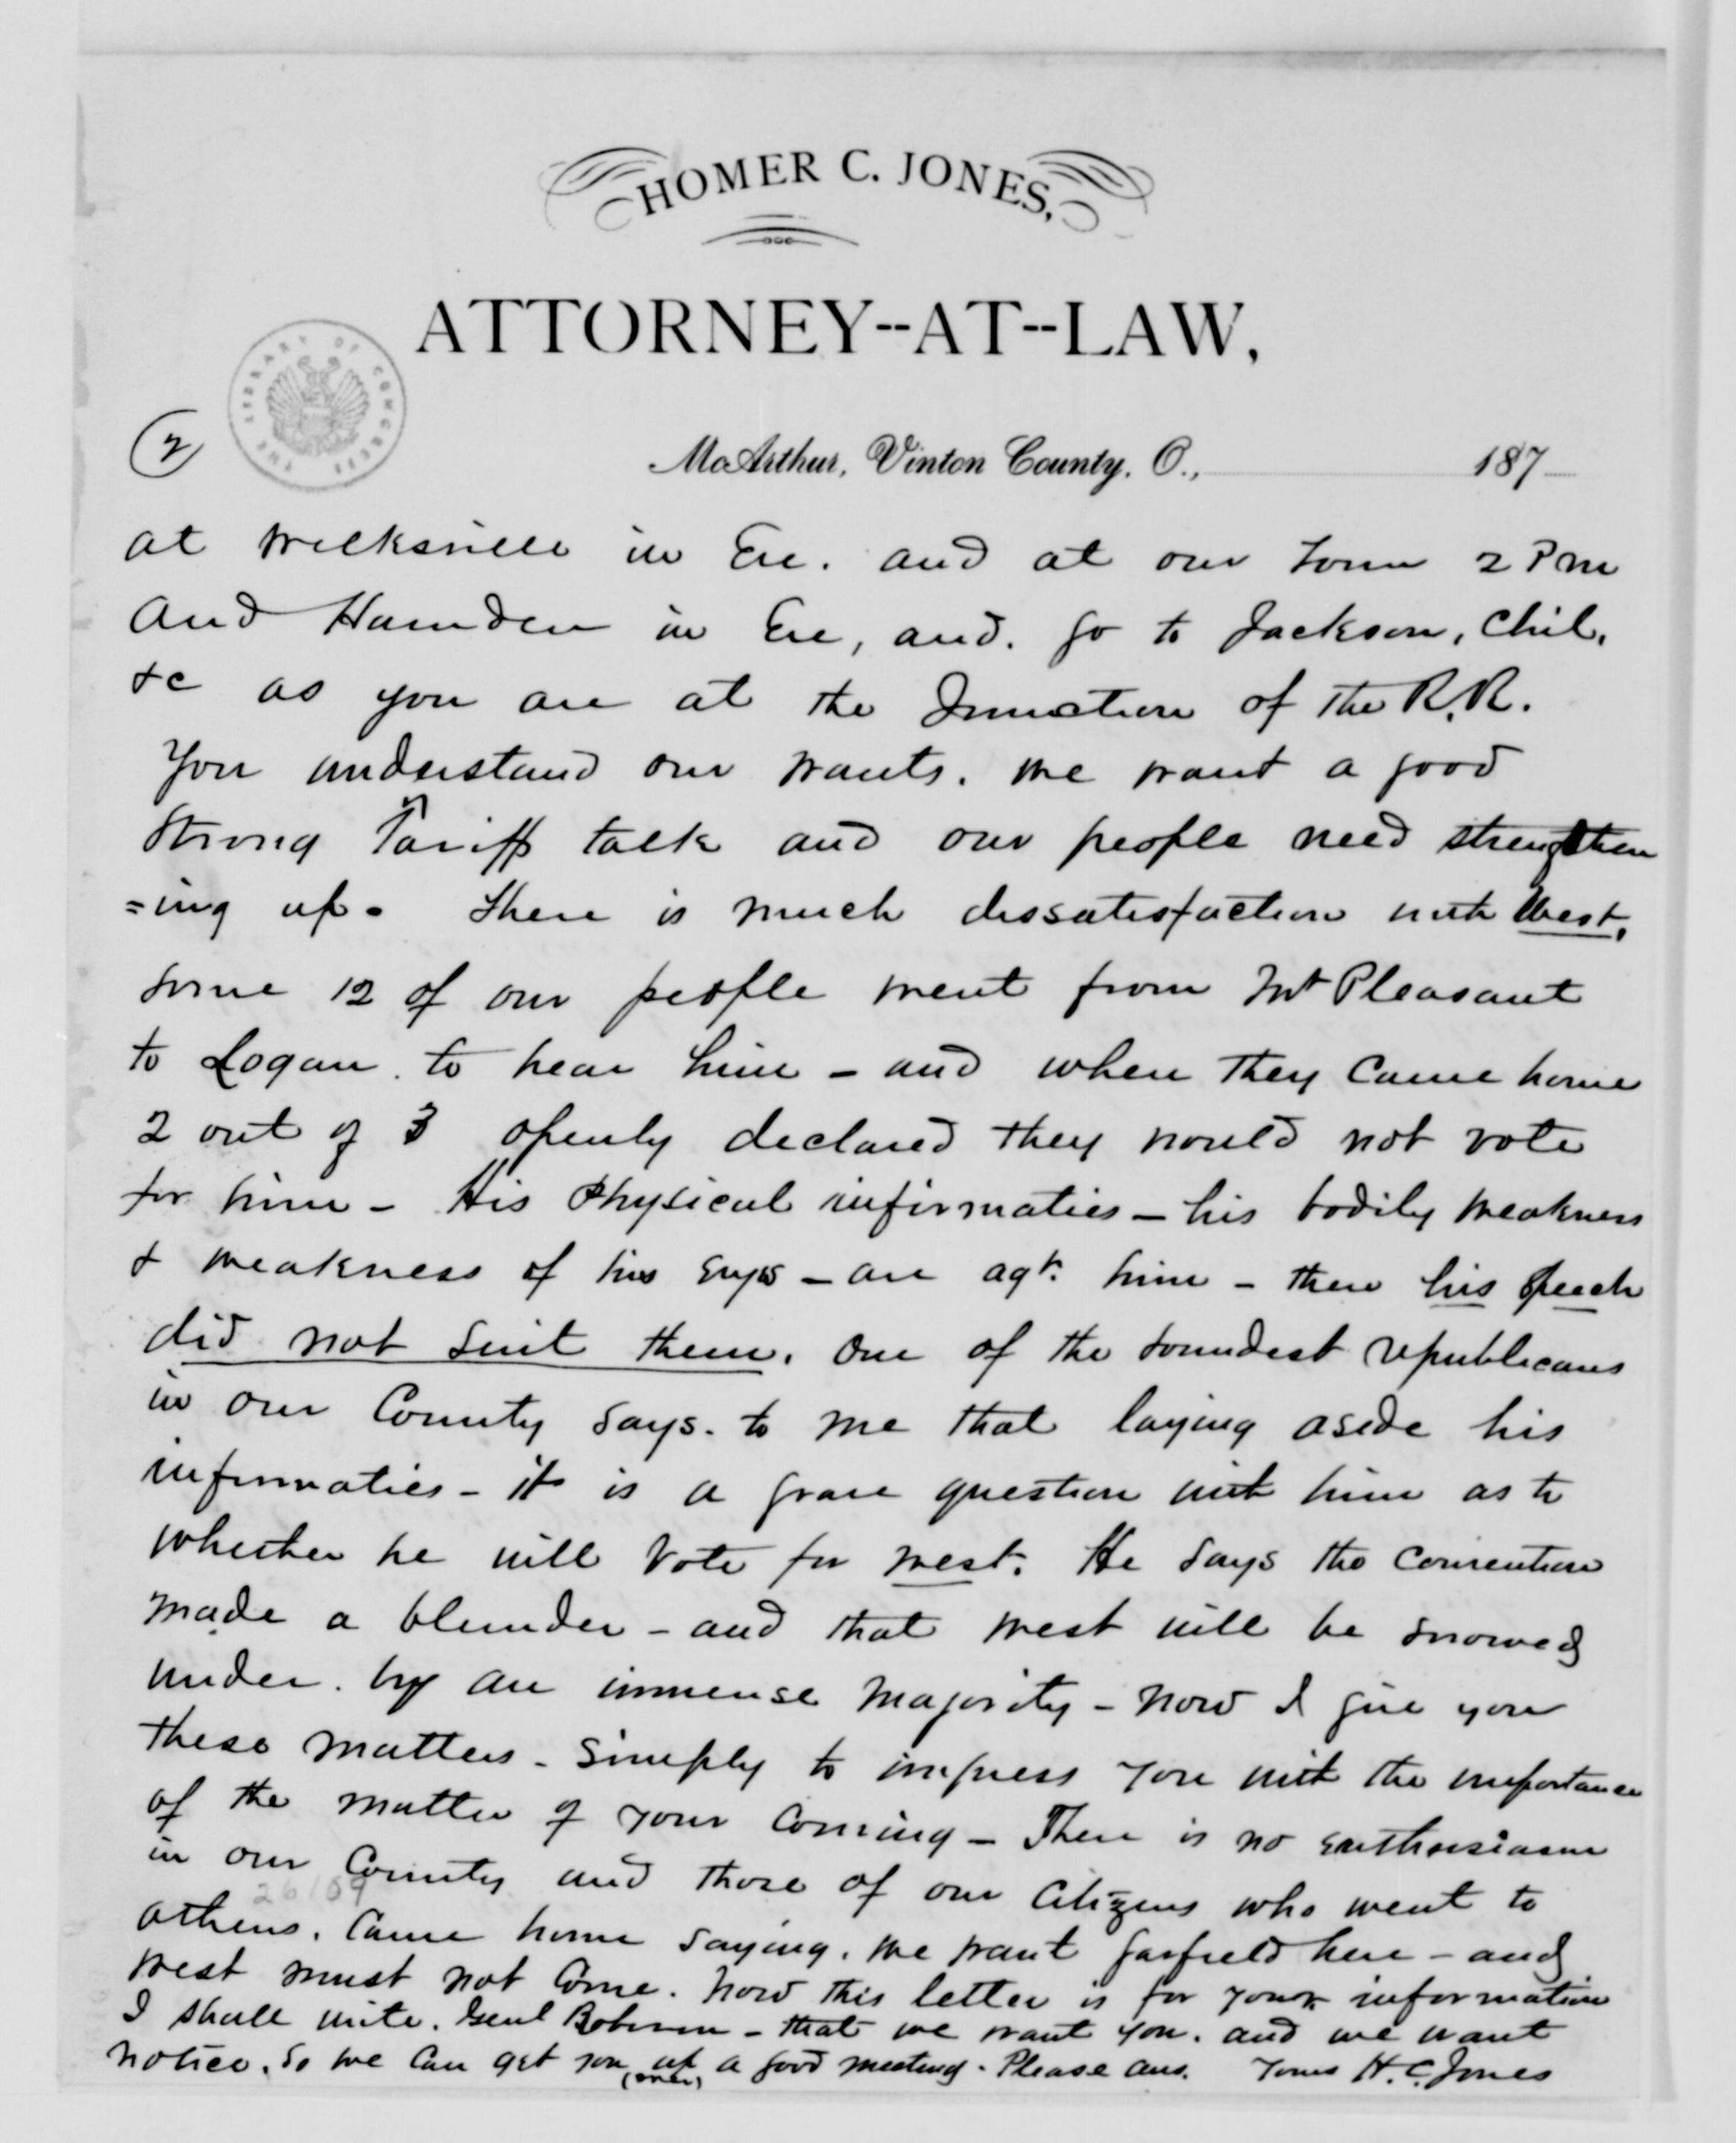 HOMER C. JONES,
ATTORNEY--AT--LAW,
THE LIBRARY OF CONGRESS
2
McArthur, Vinton County, O., 187
at Wilksville in Eve. and at our Town 2 P m
and Hamden in Eve, and. go to Jackson, Chil.
&c as you are at the Junction of the R.R.
You understand our wants. we want a good
Strong Tariff talk and our people need strengthen
=ing up. There is much dissatisfaction with West.
some 12 of our people went from Mt Pleasant
to Logan. to hear him - and when they came home
2 out of 3 openly declared they would not vote
for him - His Physical infirmaties - his bodily weakness
& weakness of his eyes - are agt. him - then his speech
did not suit them. One of the soundest republicans
in our County says. to me that laying aside his
infirmaties - it is a grave question with him as to
whether he will vote for West. He says the Convention
made a blunder - and that West will be snowed
under. by an immense majority - Now I give you
these matters - simply to impress you with the importance
of the matter of your coming - There is no enthusiasm
in our County and those of our Citizens who went to
26109
Athens. came home saying. we want Garfield here - and
West must not Come. Now this letter is for your information
I shall write. Genl Robinson - that we want you. and we want
notice. So we can get you up a good meeting. Please ans. Yours H. C. Jones
(over)